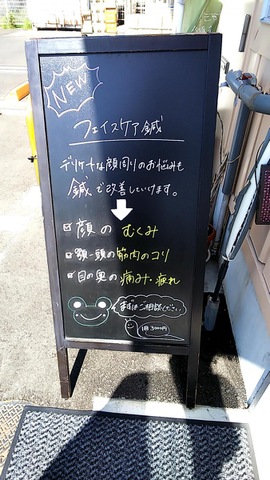 NEW
フェイスケア鍼
デリケートな顔周りのお悩みも
鍼で改善していけます。
顔の むくみ
額~頭の筋肉のコリ
目の奥の痛み・疲れ
まずはご相談ください
1回3000円